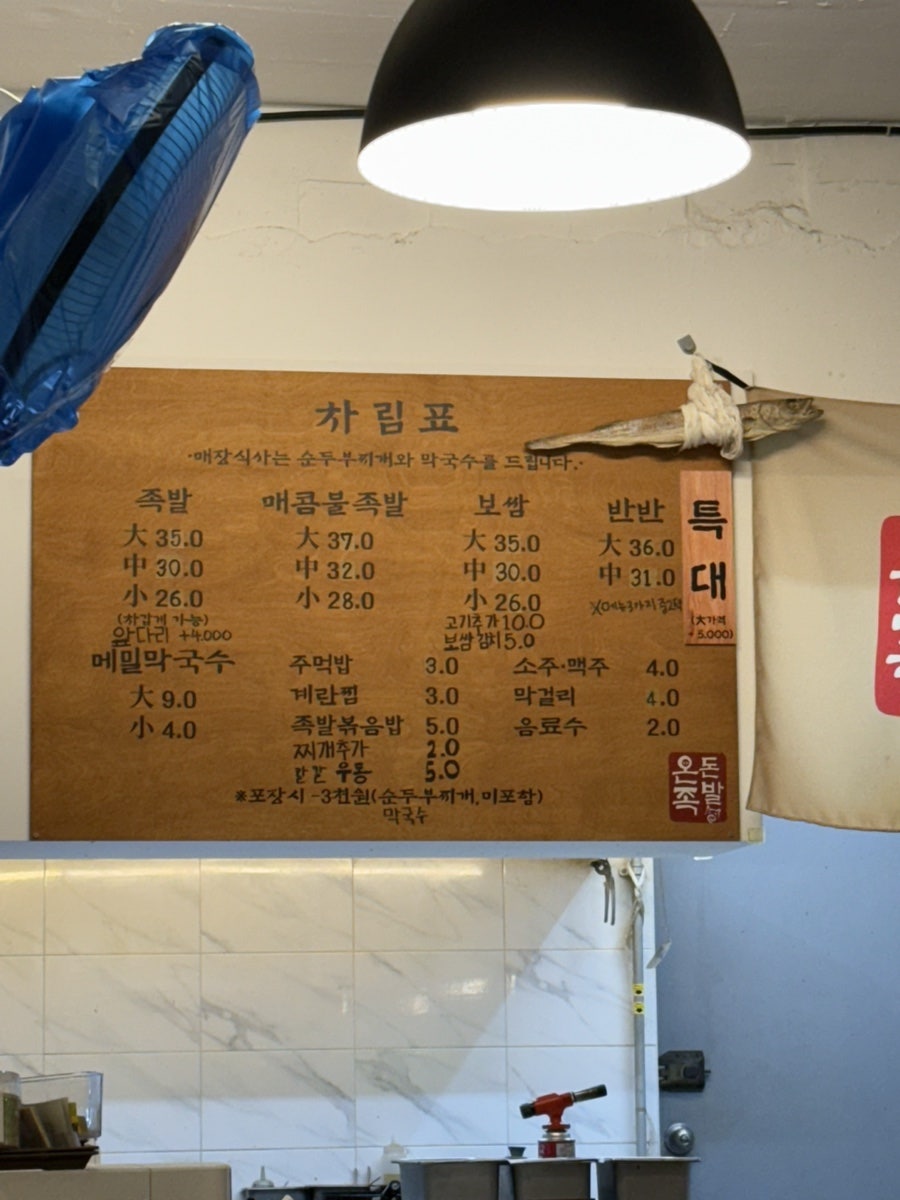 차림표
·매장식사는 순두부찌개와 막국수를 드립니다.·
족발
大 35.0
中 30.0
小 26.0
(차갑게 가능)
앞다리 +4.000
매콤불족발
大 37.0
中 32.0
小 28.0
보쌈
大 35.0
中 30.0
小 26.0
고기추가 10.0
보쌈김치 5.0
반반
大 36.0
中 31.0
특대
(大가격
+5.000)
메밀막국수
大 9.0
小 4.0
주먹밥 3.0
계란찜 3.0
족발볶음밥 5.0
찌개추가 2.0
우동 5.0
소주·맥주 4.0
막걸리 4.0
음료수 2.0
※포장시 -3천원(순두부찌개, 미포함)
막국수
온돈
족발